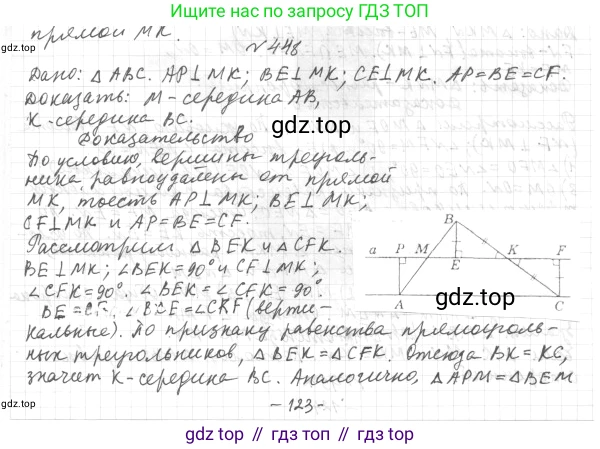 Ищите нас по запросу ГДЗ ТОП
прямой МК.
№ 448
gdz.top
Дано: △ ABC. AP⊥MK; BE⊥MK; CE⊥MK. AP=BE=CF.
Доказать: М-середина АВ,
К-середина ВС.
Доказательство
gdz.top
По условию, вершины треуголь-
ника равноудалены от прямой
МК, тоесть AP⊥MK; BE⊥MK;
CF⊥MK и AP=BE=CF.
Рассмотрим △ BEK и △ CFK.
BE⊥MK; ∠BEK=90° и CF⊥MK;
∠CFK=90°, ∠BEK=∠CFK=90°.
a P M B E K F A C
gdz.top
BE=CF, =∠CKF (верти-
кальные). По признаку равенства прямоуголь-
ных треугольников, △BEK=△CFK. Отсюда BK=KC,
значит К-середина ВС. Аналогично, △APM=△BEM
-123-
gdz.top
gdz.top // гдз.топ // gdz.top